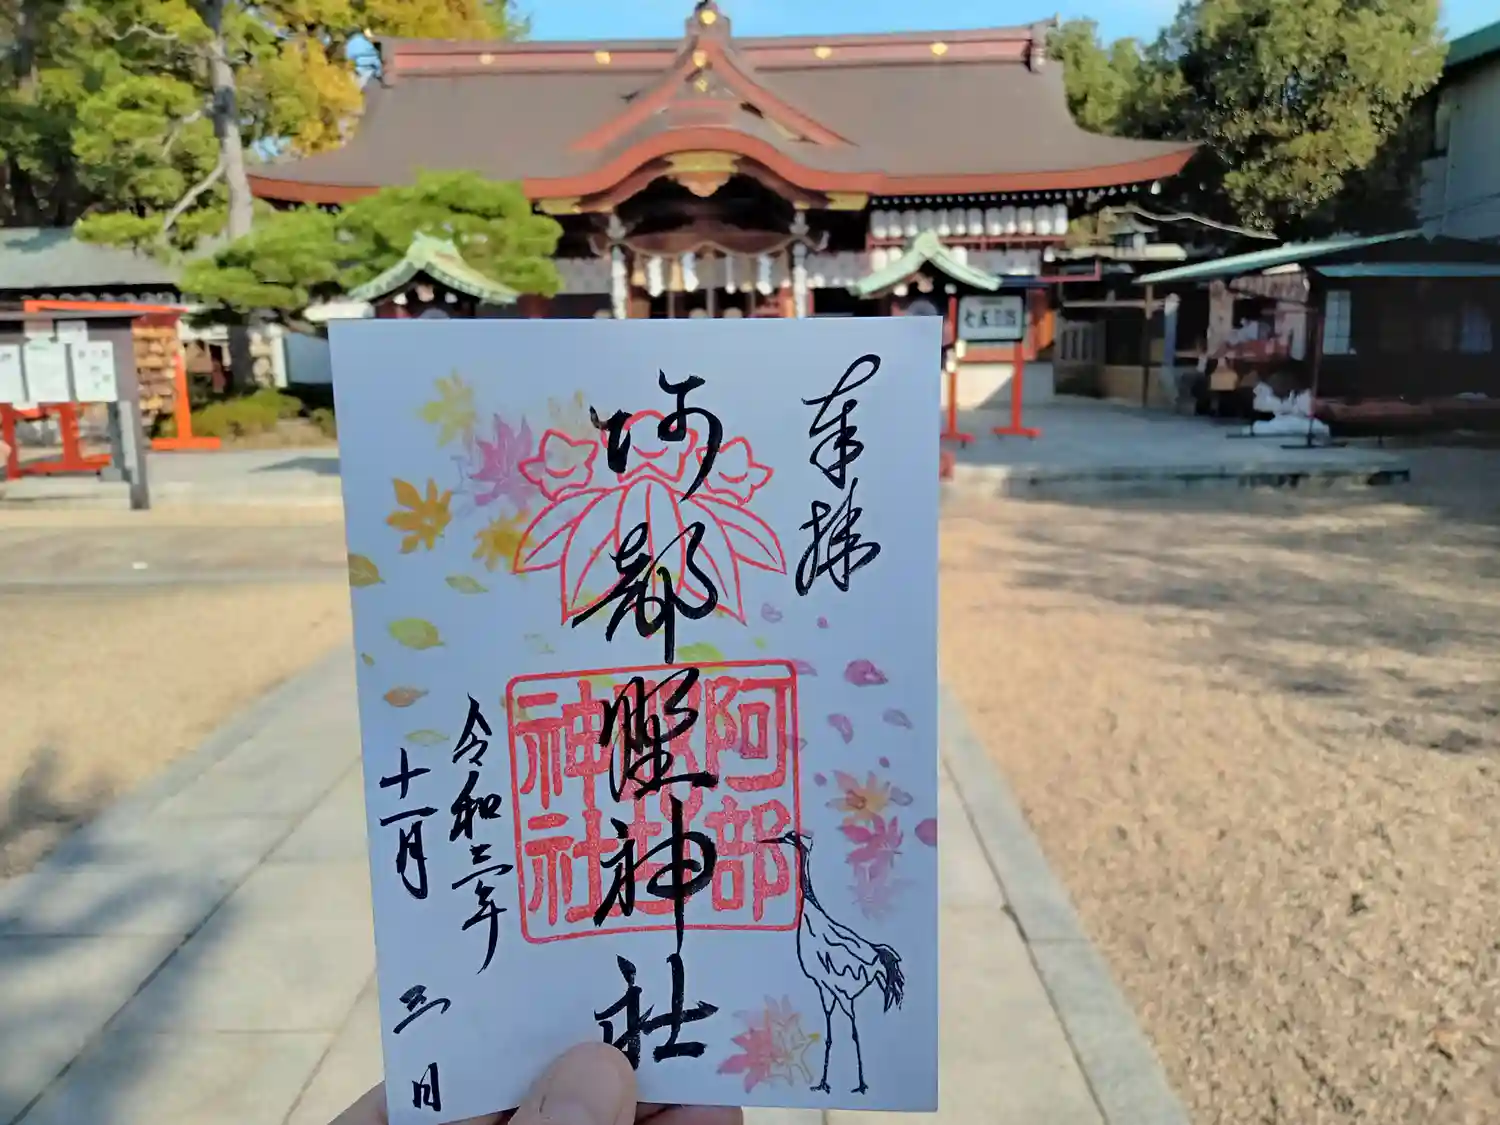 奉拝
阿部野神社
阿部
野
神社
令和三年
十一月
三日
七五三詣